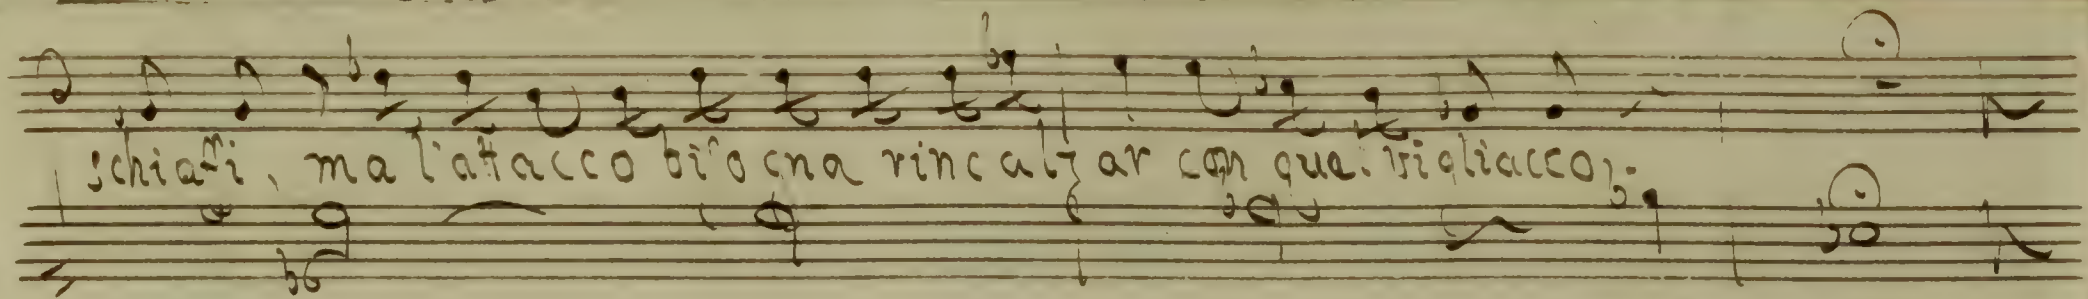 schiaffi, ma l'attacco bisogna rincalzar con quel vigliacco).